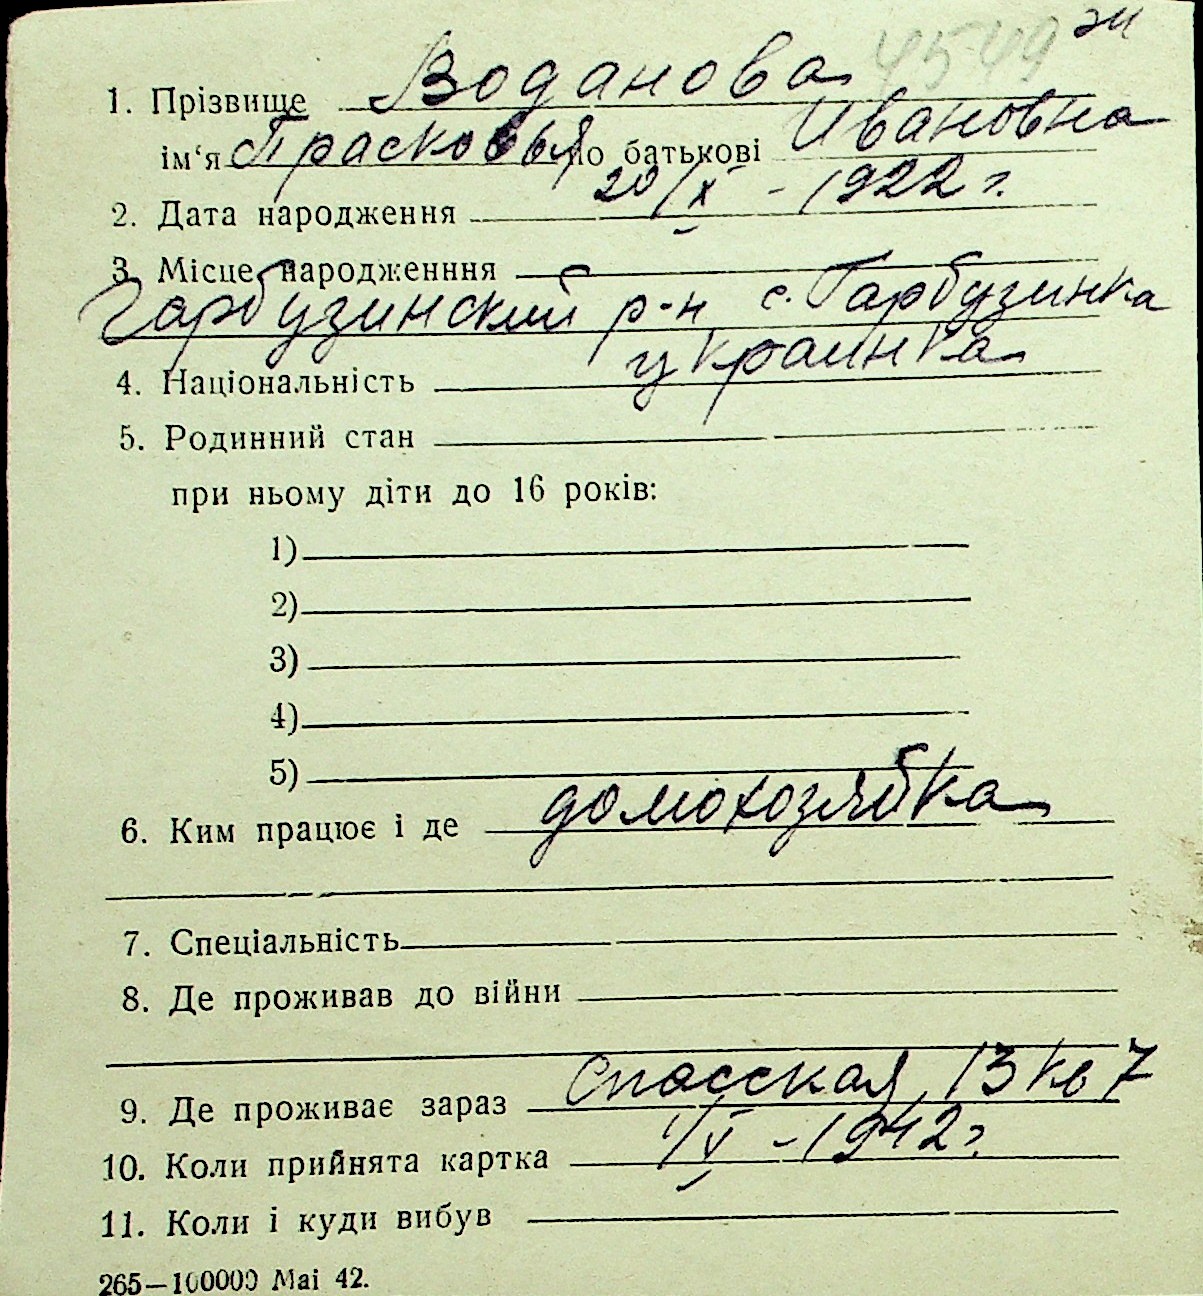 4549 эи
1. Прізвище Воданова
ім‘я Прасковья по батькові Ивановна
2. Дата народження 20/X - 1922 г.
3. Місце народженння
Гарбузинский р-н с. Гарбузинка
4. Національність украинка
5. Родинний стан
при ньому діти до 16 років:
1)
2)
3)
4)
5)
6. Ким працює і де домохозяйка
7. Спеціальність
8. Де проживав до війни
9. Де проживає зараз Спасская 13 кв 7
10. Коли прийнята картка 1/V - 1942 г.
11. Коли і куди вибув
265—100000 Mai 42.